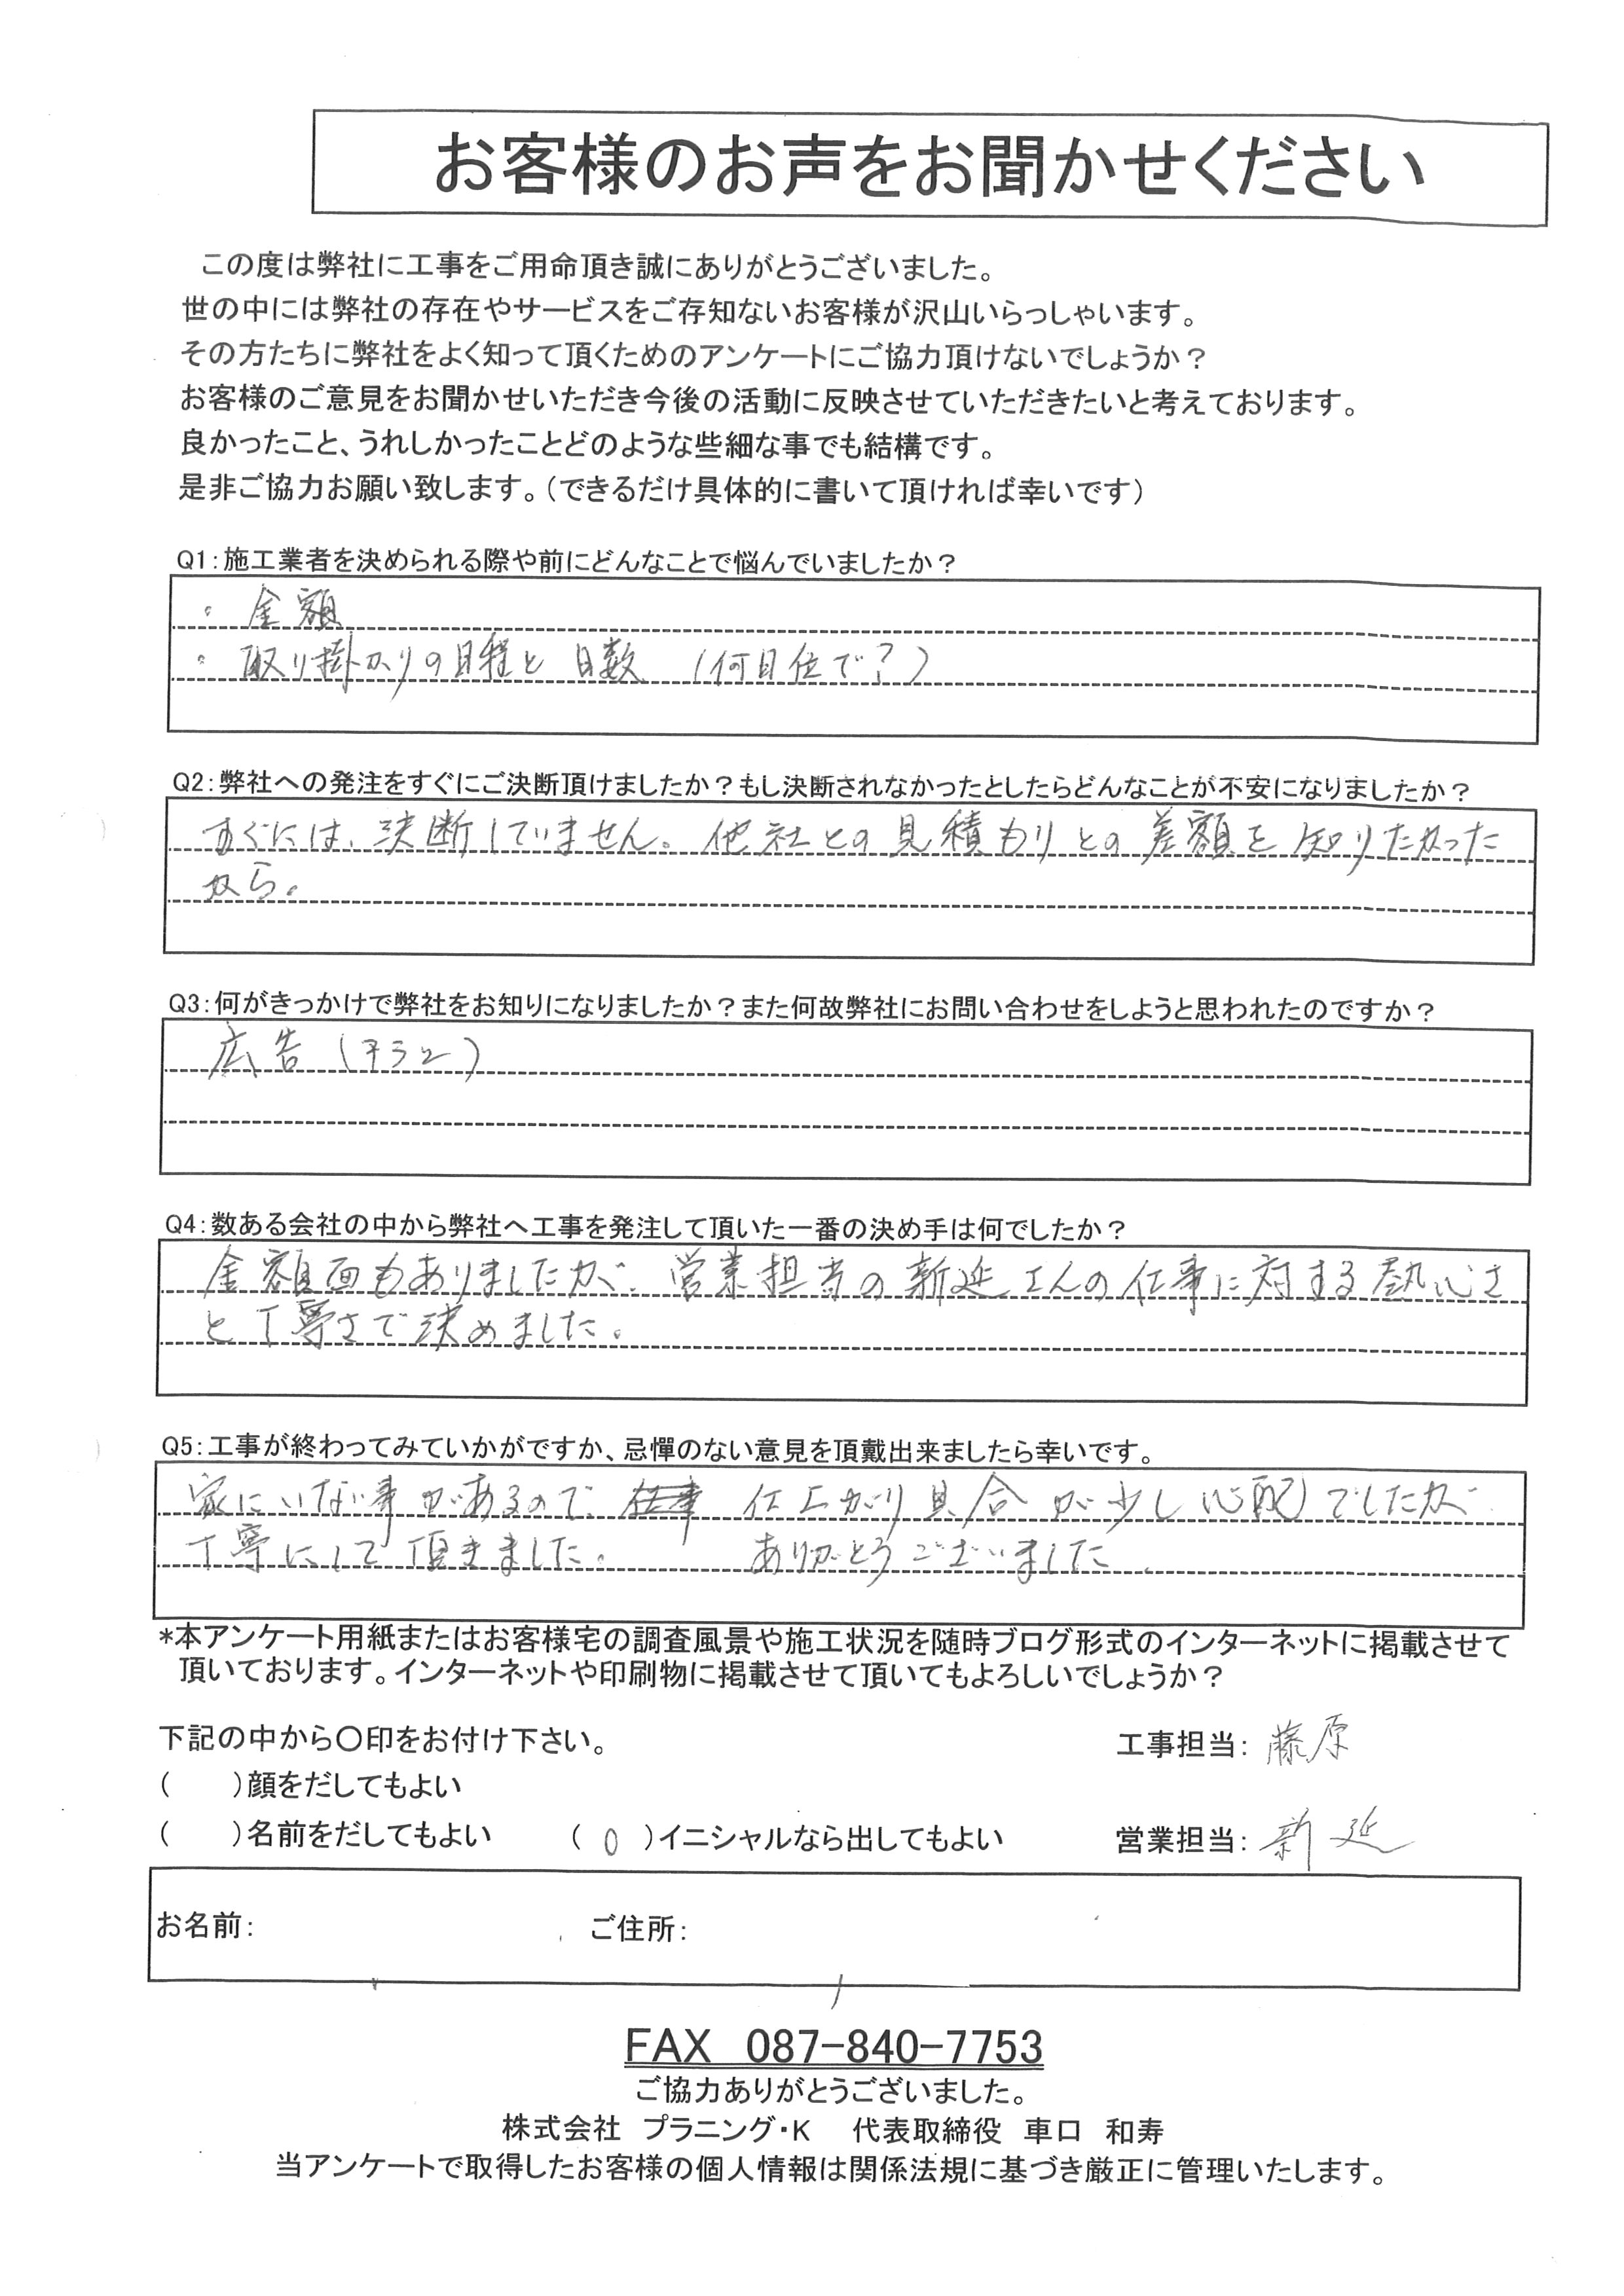 お客様のお声をお聞かせください
この度は弊社に工事をご用命頂き誠にありがとうございました。
世の中には弊社の存在やサービスをご存知ないお客様が沢山いらっしゃいます。
その方たちに弊社をよく知って頂くためのアンケートにご協力頂けないでしょうか？
お客様のご意見をお聞かせいただき今後の活動に反映させていただきたいと考えております。
良かったこと、うれしかったことどのような些細な事でも結構です。
是非ご協力お願い致します。（できるだけ具体的に書いて頂ければ幸いです）
Q1：施工業者を決められる際や前にどんなことで悩んでいましたか？
。金額
。取り掛かりの日程と日数（何日位で？）
Q2：弊社への発注をすぐにご決断頂けましたか？もし決断されなかったとしたらどんなことが不安になりましたか？
すぐには、決断していません。他社との見積もりとの差額を知りたかった
から。
Q3：何がきっかけで弊社をお知りになりましたか？また何故弊社にお問い合わせをしようと思われたのですか？
広告（チラシ）
Q4：数ある会社の中から弊社へ工事を発注して頂いた一番の決め手は何でしたか？
金額面もありましたが、営業担当の新延さんの仕事に対する熱心さ
と丁寧さで決めました。
Q5：工事が終わってみていかがですか、忌憚のない意見を頂戴出来ましたら幸いです。
家にいない事があるので、仕事 仕上がり具合が少し心配でしたが
丁寧にして頂きました。 ありがとうございました、
*本アンケート用紙またはお客様宅の調査風景や施工状況を随時ブログ形式のインターネットに掲載させて
頂いております。インターネットや印刷物に掲載させて頂いてもよろしいでしょうか？
下記の中から〇印をお付け下さい。 工事担当：藤原
（　　）顔をだしてもよい
（　　）名前をだしてもよい （ 0 ）イニシャルなら出してもよい 営業担当：新延
お名前： ご住所：
FAX 087-840-7753
ご協力ありがとうございました。
株式会社 プラニング・K 代表取締役 車口 和寿
当アンケートで取得したお客様の個人情報は関係法規に基づき厳正に管理いたします。